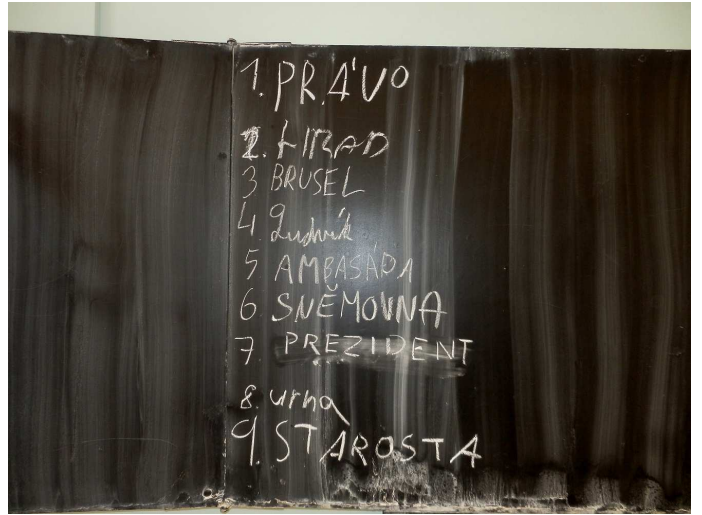 1. PRÁVO
2. HRAD
3 BRUSEL
4 Ludvík
5 AMBASÁDA
6 SNĚMOVNA
7 PREZIDENT
8. urna
9. STAROSTA